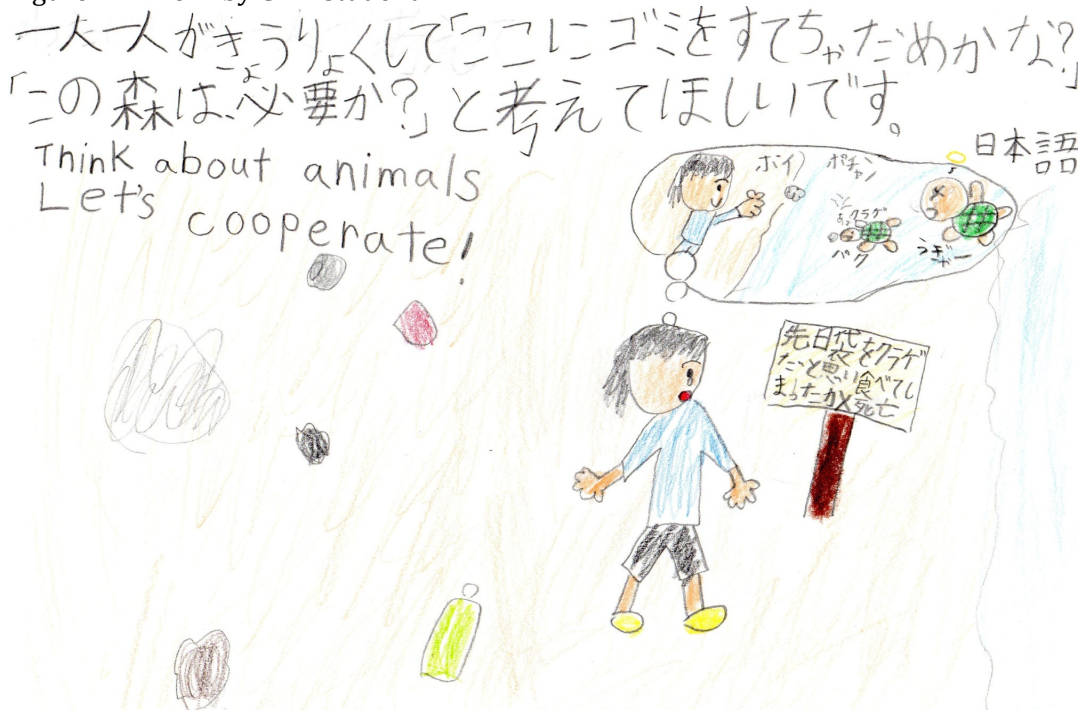 一人一人がきょうりょくして「ここにゴミをすてちゃだめかな?」
「この森は、必要か?」と考えてほしいです。
Think about animals
Let's
cooperate!
日本語
ポイ
ポチャン
クラゲ
パク
うぎゃー
先日袋をクラゲ
だと思い食べてし
まったカメ死亡